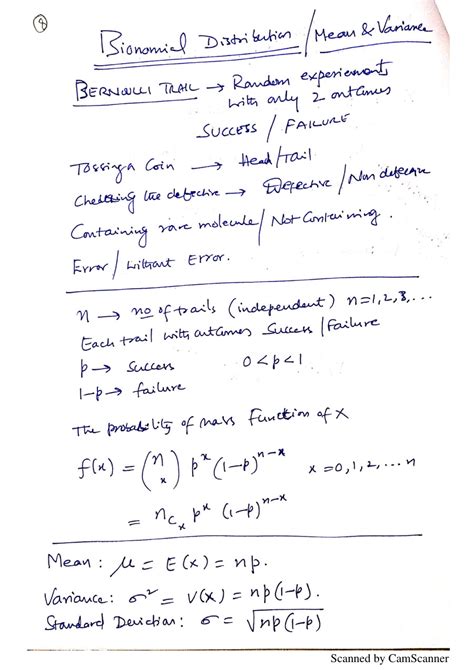 8
Bionomial Distribution / Mean & Variance
BERNOULLI TRAIL → Random experiement
with only 2 outcomes
SUCCESS / FAILURE
Tossing a Coin → Head/Tail
Checking the defective → Defective / Non defective
Containing rare molecule / Not Containing.
Error / without Error.
n → no of trails (independent) n=1,2,3,...
Each trail with outcomes Success / Failure
p → success 0<p<1
1-p → failure
The probability of mass Function of X
f(x) = (n x) p^x (1-p)^n-x x=0,1,2,...n
= n C_x p^x (1-p)^n-x
Mean : μ = E(x) = np.
Variance: σ² = V(x) = np(1-p).
Standard Deviction: σ = √np(1-p)
Scanned by CamScanner